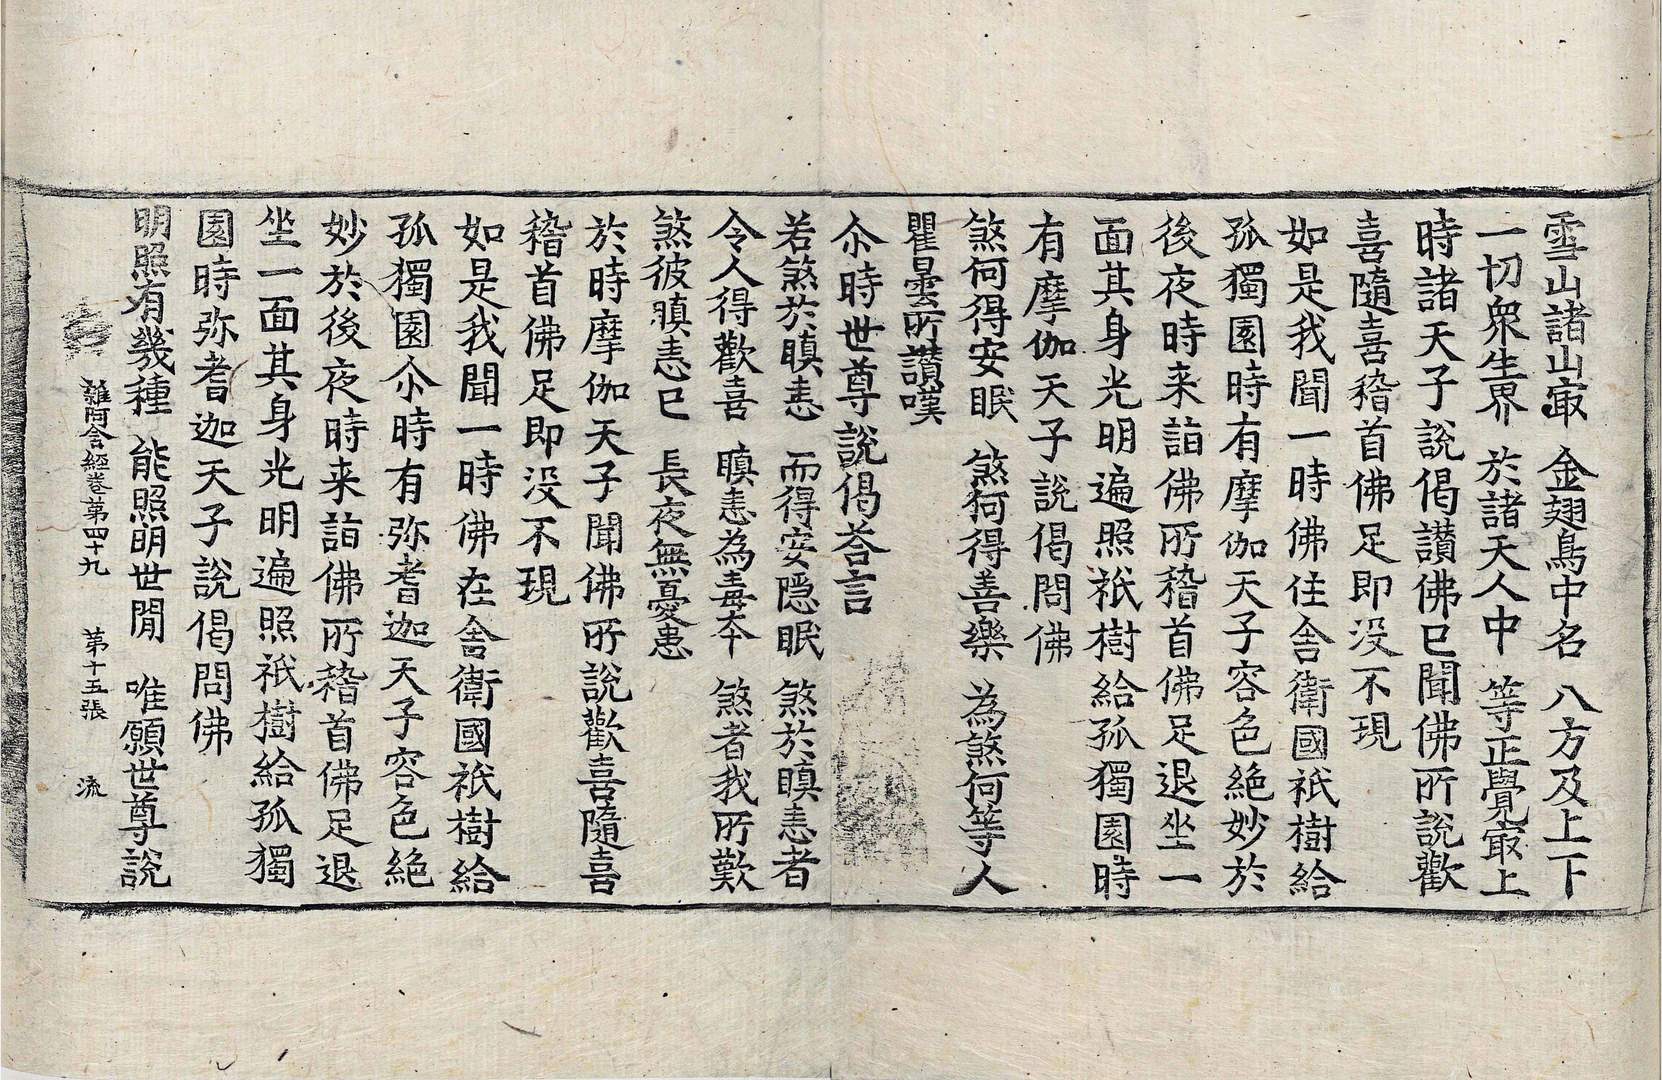 雪山諸山㝡　金翅鳥中名　八方及上下
一切衆生界　於諸天人中　等正覺㝡上
時諸天子說偈讃佛已聞佛所說歡
喜隨喜稽首佛足即没不現
如是我聞一時佛住舍衛國祇樹給
孤獨園時有摩伽天子容色絶妙於
後夜時来詣佛所稽首佛足退坐一
面其身光明遍照祇樹給孤獨園時
有摩伽天子說偈問佛
煞何得安眠　煞何得善樂　為煞何等人
瞿曇所讃嘆
尒時世尊說偈荅言
若煞於瞋恚　而得安隠眠　煞於瞋恚者
令人得歡喜　瞋恚為毒夲　煞者我所歎
煞彼瞋恚已　長夜無憂患
於時摩伽天子聞佛所說歡喜隨喜
稽首佛足即没不現
如是我聞一時佛在舍衛國祇樹給
孤獨園尒時有弥耆迦天子容色絶
妙於後夜時来詣佛所稽首佛足退
坐一面其身光明遍照祇樹給孤獨
園時弥耆迦天子說偈問佛
明照有幾種　能照明世閒　唯願世尊說
雜阿含經卷第四十九　第十五張　流